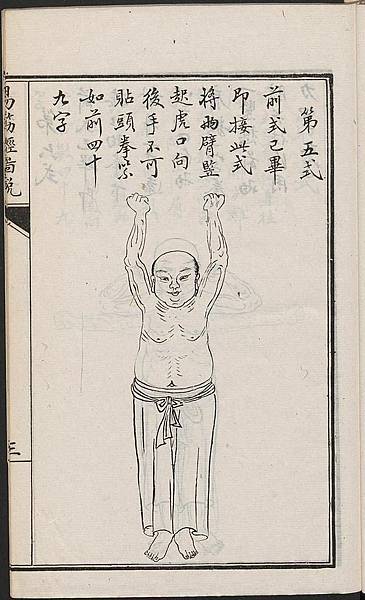 第五式
前式已畢
即接此式
將兩臂竪
起虎口向
後手不可
貼頭拳緊
如前四十
九字
易筋經圖說
三